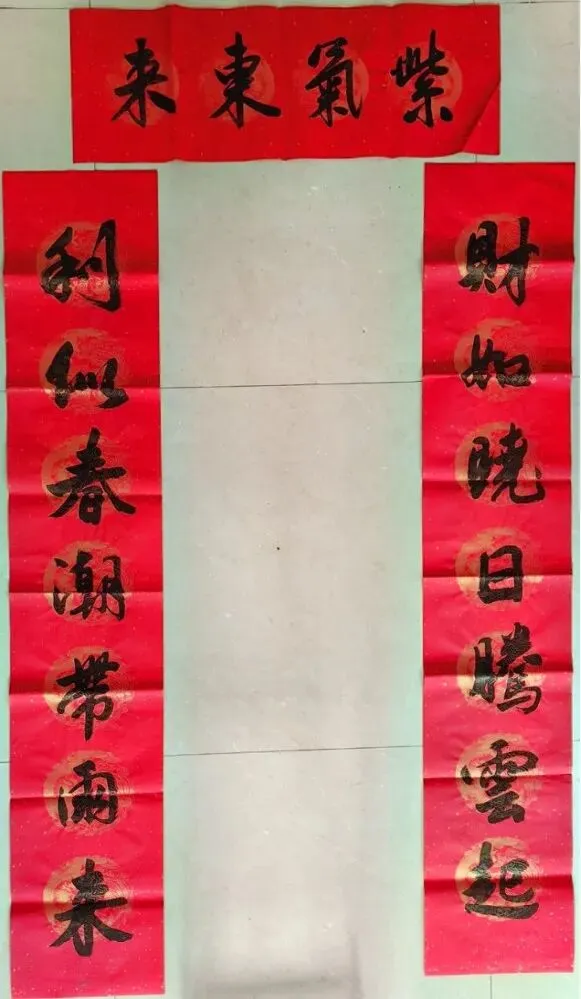 紫氣東来
財如曉日騰雲起
利似春潮帶雨来